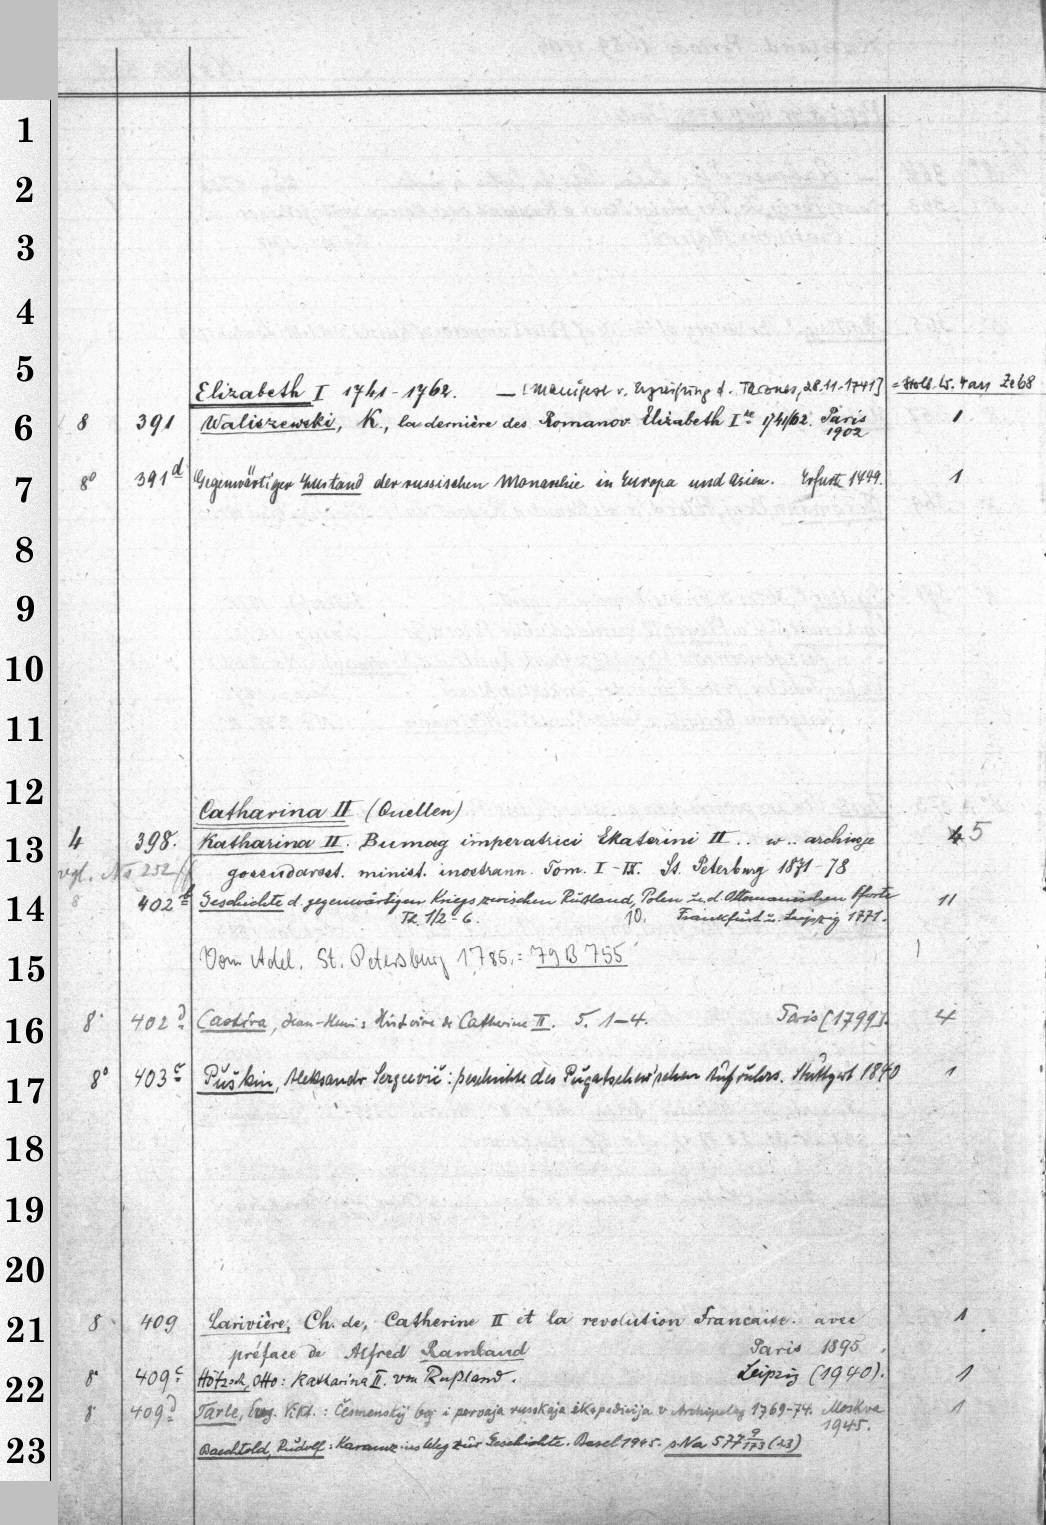 1
2
3
4
5
Elizabeth I 1741-1762. — [Manifest v. Ergreifung d. Thrones, 28.11.1741] = Stolb. 4 an Ze68
6
8 391 Waliszewski, K., la dernière des Romanov Elizabeth Ire 1741/62. Paris 1902 1
7
8° 391d Gegenwärtiger Zustand der russischen Monarchie in Europa und Asien. Erfurt 1749. 1
8
9
10
11
12
Catharina II (Quellen)
13
4 398. Katharina II. Bumag imperatrici Ekaterini II .. w .. archiwje 5
vgl. Na 232/ff gosudarst. minist. inostrann. Tom. I-IX. St. Peterburg 1871-78
14
8 402b Geschichte d. gegenwärtigen Kriegs zwischen Rußland, Polen u. d. Ottomanischen Pforte 11
Th. 1/2-6. 10. Frankfurt u. Leipzig 1771.
15
Vom Adel. St. Petersburg 1785. = 79 B 755
16
8° 402d Castéra, Jean-Henri: Histoire de Catherine II. T. 1-4. Paris [1799]. 4
17
8° 403c Puškin, Aleksandr Sergeevič: Geschichte des Pugatschew'schen Aufruhrs. Stuttgart 1840 1
18
19
20
21
8 409 Larivière, Ch. de, Catherine II et la revolution Francaise. avec 1
préface de Alfred Rambaud Paris 1895
22
8° 409c Hötzsch, Otto: Katharina II. von Rußland. Leipzig (1940). 1
8 409d Tarle, Evg. Vikt.: Česmenskij boj i pervaja russkaja ėkspedicija v Archipelag 1769-74. Moskva 1945. 1
23
Baechtold, Rudolf: Karamzins Weg zur Geschichte. Basel 1945. s. Na 577 9/173 (23)